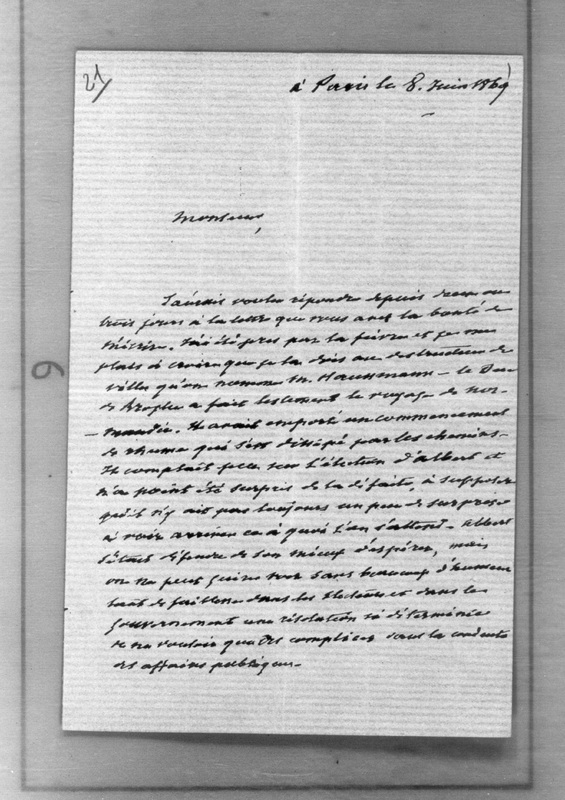 21
à Paris le 8. Juin 1869
Monsieur,
J'aurais voulu répondre depuis deux ou
trois jours à la lettre que vous avez la bonté de
m'écrire. J'ai été pris par la fièvre et je me
plais à croire que je la dois au destructeur de
ville qu'on nomme M. Haussmann - le Duc
de Broglie a fait lestement le voyage de Nor-
- mandie. Il avait emporté un commencement
de rhume qui s'est dissipé par les chemins -
Il comptait peu sur l'élection d'Albert et
n'a point été surpris de la défaite, à supposer
qu'il n'y ait pas toujours un peu de surprise
à voir arriver ce à quoi l'on s'attend - Albert
s'était défendu de son mieux d'espérer, mais
on ne peut guère voir sans beaucoup d'humeur
tant de faiblesse dans les Electeurs et dans le
gouvernement une résolution si déterminée
de ne vouloir que des complices dans la conduite
des affaires publiques -
6